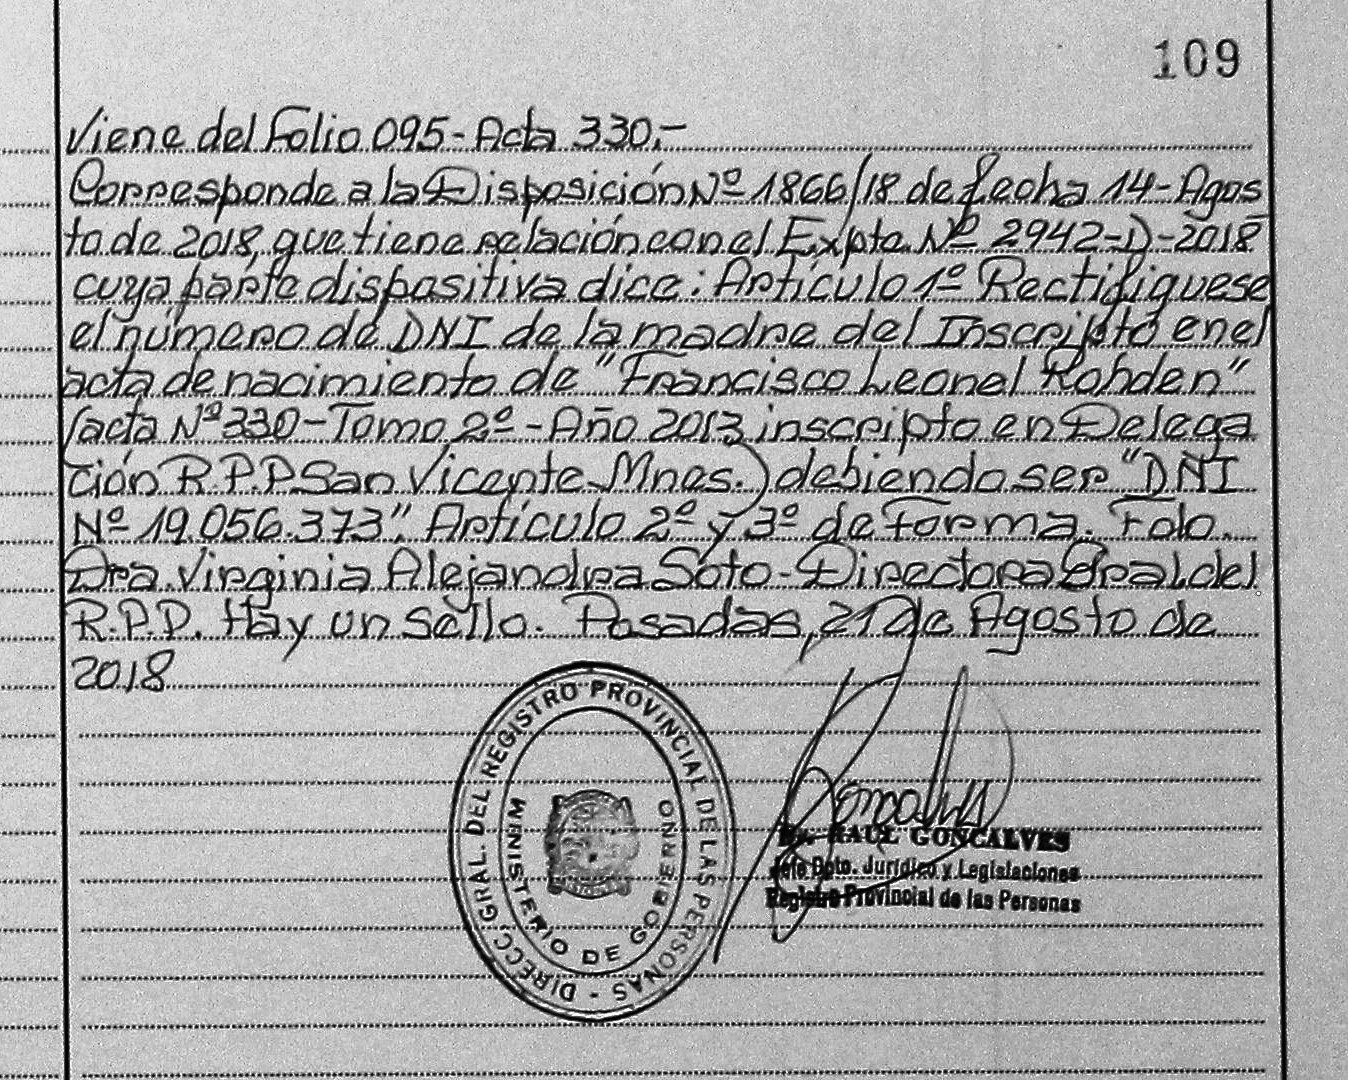 109
Viene del Folio 095-Acta 330.-
Corresponde a la Disposición Nº 1866/18 de fecha 14-Agos
to de 2018, que tiene relación con el Expte. Nº 2942-D-2018
cuya parte dispositiva dice: Artículo 1º Rectifiquese
el número de DNI de la madre del Inscripto en el
acta de nacimiento de "Francisco Leonel Rohden"
(acta Nº 330-Tomo 2º-Año 2013 inscripto en Delega
ción R.P.P San Vicente Mnes.) debiendo ser "DNI
Nº 19.056.373". Artículo 2º y 3º de Forma. Fdo.
Dra. Virginia Alejandra Soto-Directora Gral. del
R.P.P. Hay un sello. Posadas, 21 de Agosto de
2018
DIRECC. GRAL. DEL REGISTRO PROVINCIAL DE LAS PERSONAS -
MINISTERIO DE GOBIERNO
Goncalves
Dr. RAUL GONCALVES
Jefe Dpto. Jurídico y Legislaciones
Registro Provincial de las Personas